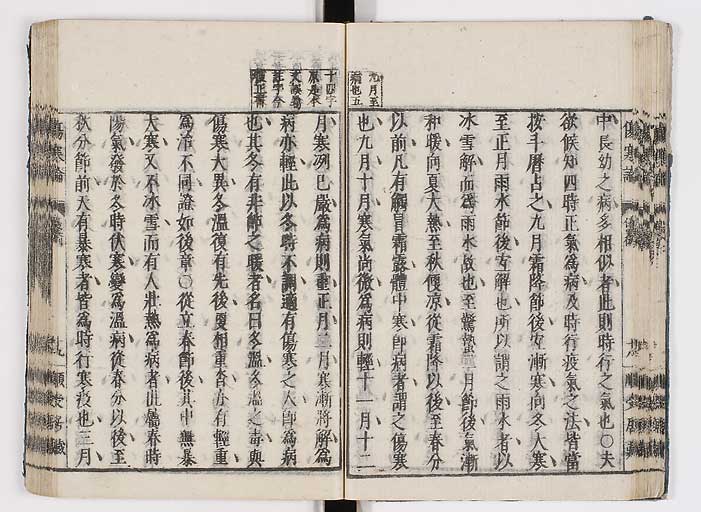 九月至
霜也五
中長幼之病多相似者此則時行之氣也○夫
欲候知四時正氣爲病及時行疫氣之法皆當
按斗曆占之九月霜降節後宜漸寒向冬大寒
至正月雨水節後宜解也所以謂之雨水者以
氷雪解而爲雨水故也至驚蟄二月節後氣漸
和暖向夏大熱至秋便凉從霜降以後至春分
以前凡有觸冒霜露體中寒即病者謂之傷寒
也九月十月寒氣尚微爲病則輕十一月十二
十四字
月寒冽已嚴爲病則重正月二月寒漸將解爲
病亦輕此以冬時不調適有傷寒之人即爲病
也其冬有非節之暖者名曰冬溫冬溫之毒與
傷寒大異冬溫復有先後更相重沓亦有輕重
爲治不同證如後章○從立春節後其中無暴
大寒又不氷雪而有人壯熱爲病者此屬春時
陽氣發於冬時伏寒變爲溫病從春分以後至
秋分節前天有暴寒者皆爲時行寒疫也三月
傷寒論
傷寒論